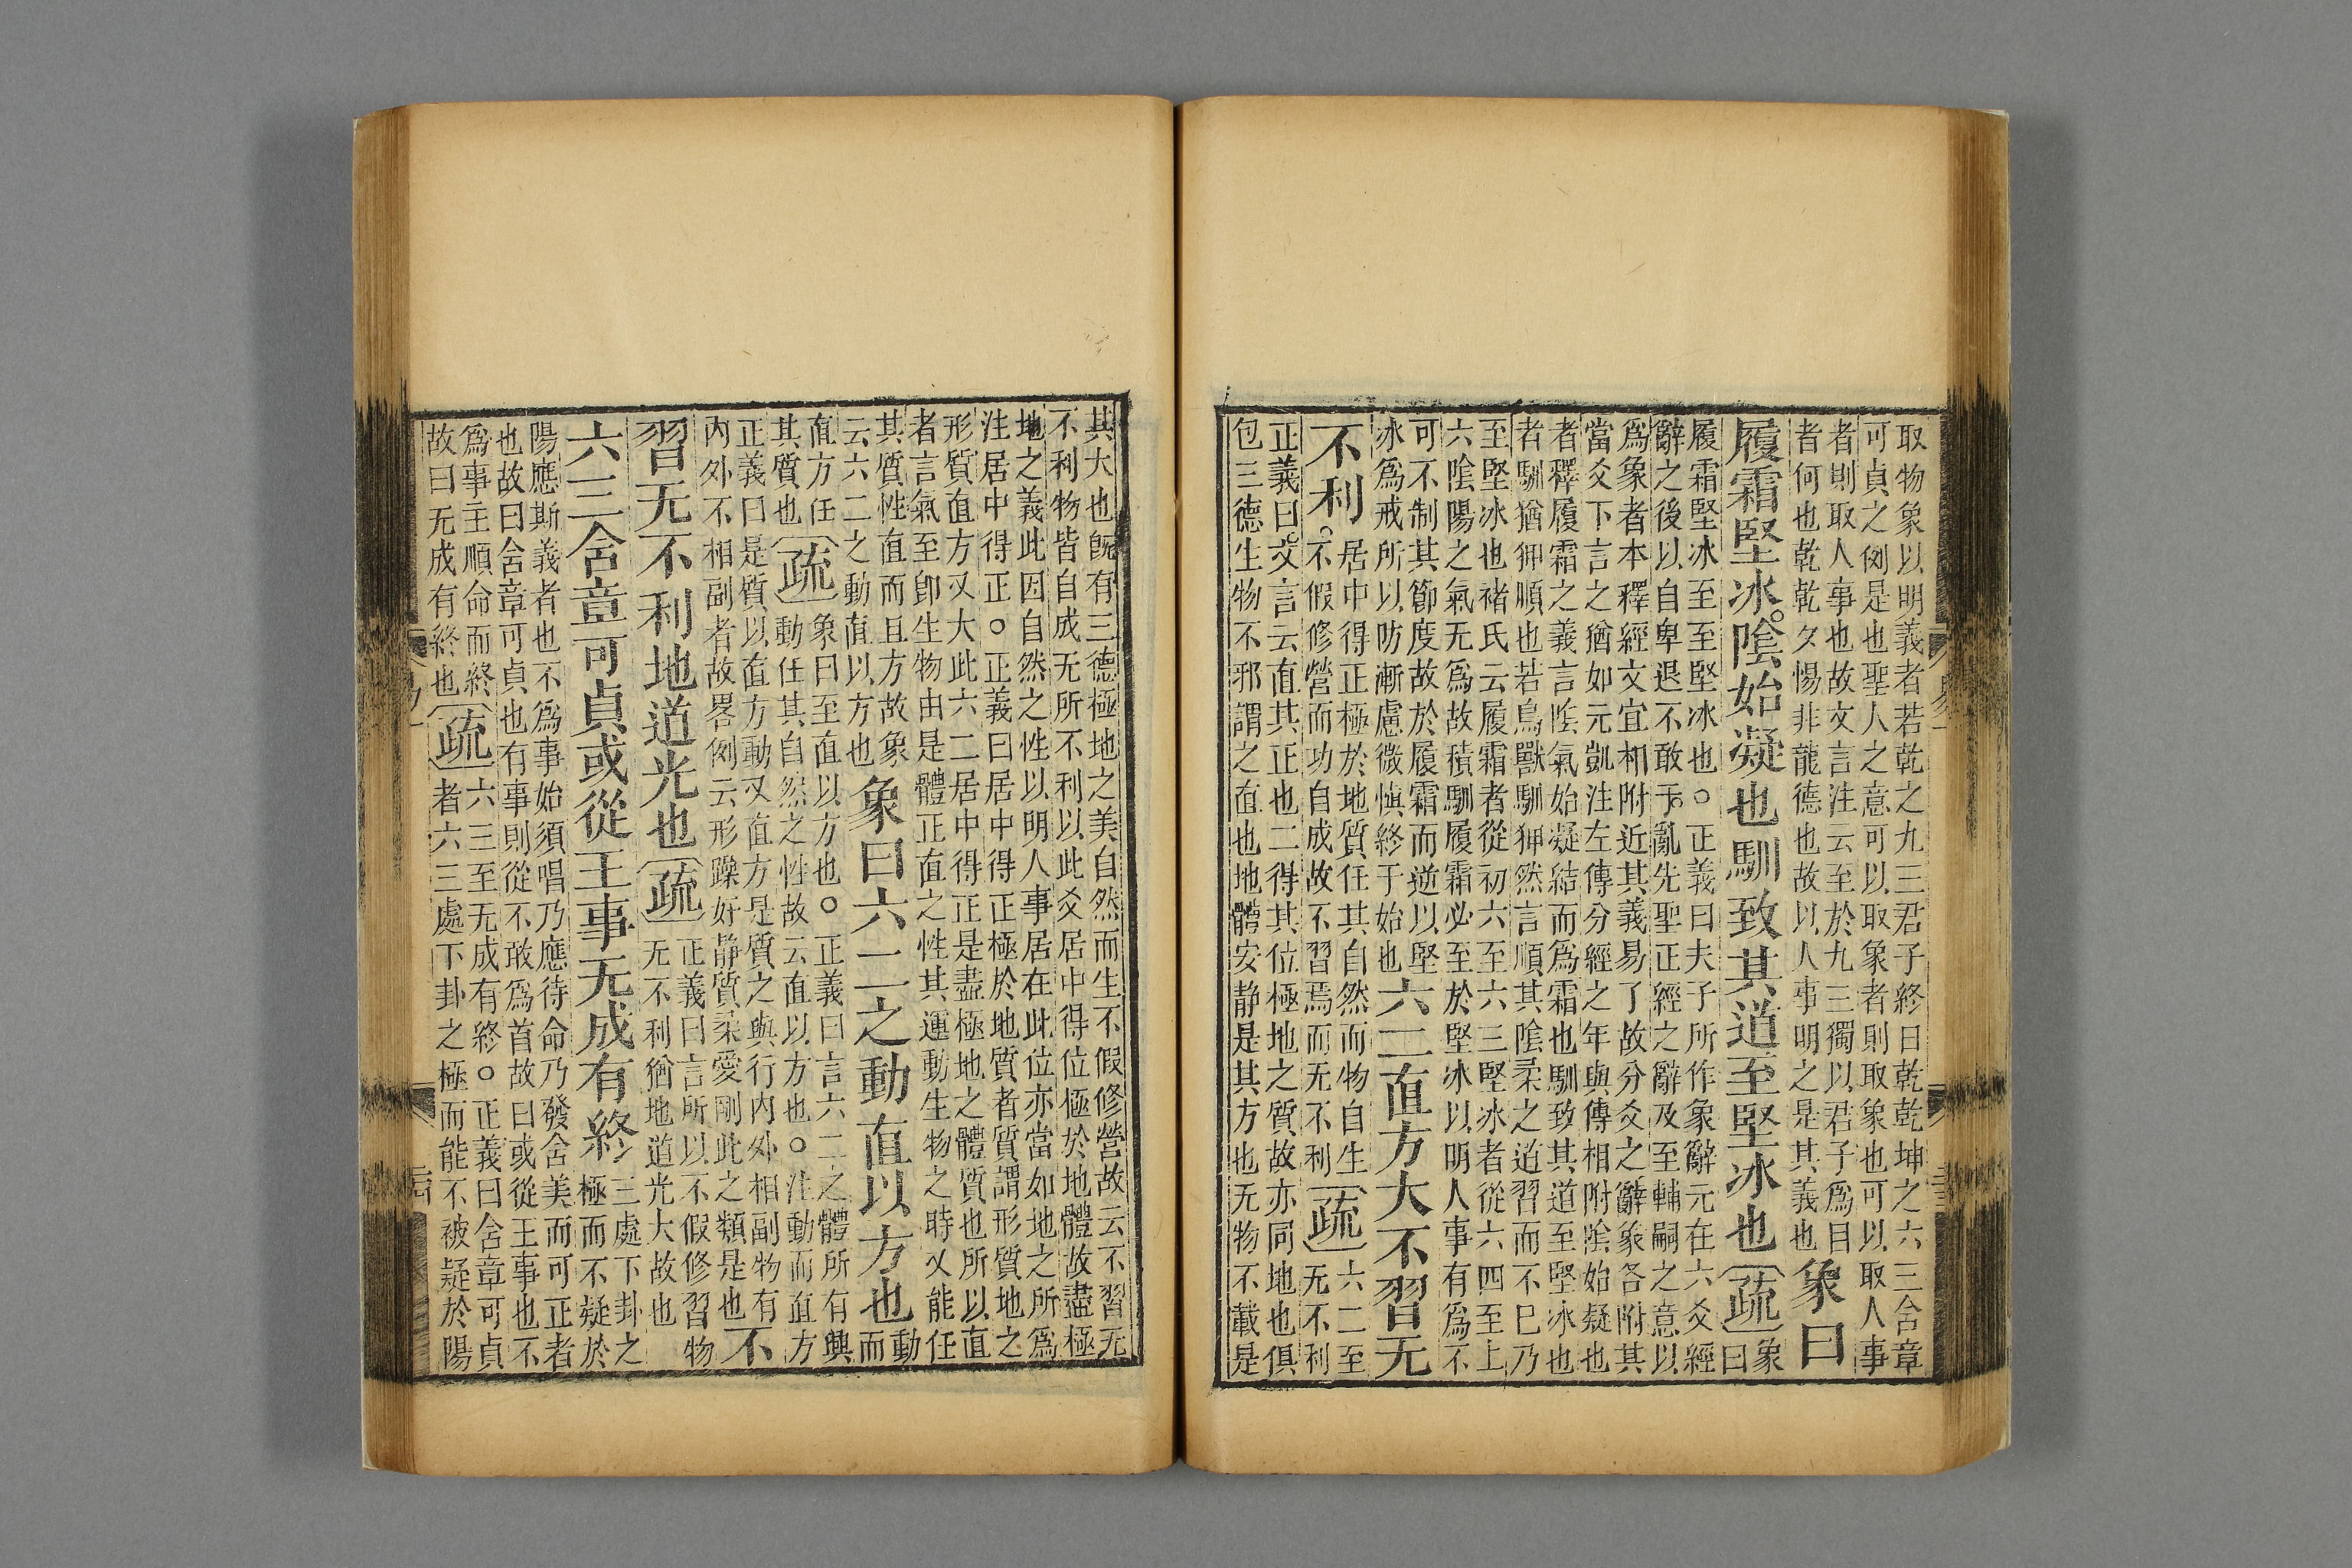 取物象以明義者若乾之九三君子終日乾乾坤之六三含章
可貞之例是也聖人之意可以取象者則取象也可以取人事
者則取人事也故文言注云至於九三獨以君子爲目
者何也乾乾夕惕非龍德也故以人事明之是其義也
象曰
履霜堅冰。陰始凝也馴致其道至堅冰也疏
象
曰
履霜堅冰至至堅冰也○正義曰夫子所作象辭元在六爻經
辭之後以自卑退不敢干亂先聖正經之辭及至輔嗣之意以
爲象者本釋經文宜相附近其義易了故分爻之辭象各附其
當爻下言之猶如元凱注左傳分經之年與傳相附陰始凝也
者釋履霜之義言陰氣始凝結而爲霜也馴致其道至堅冰也
者馴猶狎順也若鳥獸馴狎然言順其陰柔之道習而不已乃
至堅冰也褚氏云履霜者從初六至六三堅冰者從六四至上
六陰陽之氣无爲故積馴履霜必至於堅冰以明人事有爲不
可不制其節度故於履霜而逆以堅
冰爲戒所以防漸慮微慎終于始也
六二直方大不習无
不利。
居中得正極於地質任其自然而物自生
不假修營而功自成故不習焉而无不利
疏
六二至
无不利
正義曰。文言云直其正也二得其位極地之質故亦同地也俱
包三德生物不邪謂之直也地體安静是其方也无物不載是
其大也旣有三德極地之美自然而生不假修營故云不習无
不利物皆自成无所不利以此爻居中得位極於地體故盡極
地之義此因自然之性以明人事居在此位亦當如地之所爲
注居中得正○正義曰居中得正極於地質者質謂形質地之
形質直方又大此六二居中得正是盡極地之體質也所以直
者言氣至卽生物由是體正直之性其運動生物之時又能任
其質性直而且方故象
云六二之動直以方也
象曰六二之動直以方也
動
而
直方任
其質也
疏
象曰至直以方也○正義曰言六二之體所有興
動任其自然之性故云直以方也○注動而直方
正義曰是質以直方動又直方是質之與行内外相副物有
内外不相副者故畧例云形躁好静質柔愛剛此之類是也
不
習无不利地道光也疏
正義曰言所以不假修習物
无不利猶地道光大故也
六三含章可貞或從王事无成有終
三處下卦之
極而不疑於
陽應斯義者也不爲事始須唱乃應待命乃發含美而可正者
也故曰含章可貞也有事則從不敢爲首故曰或從王事也不
爲事主順命而終
故曰无成有終也
疏
六三至无成有終○正義曰含章可貞
者六三處下卦之極而能不被疑於陽